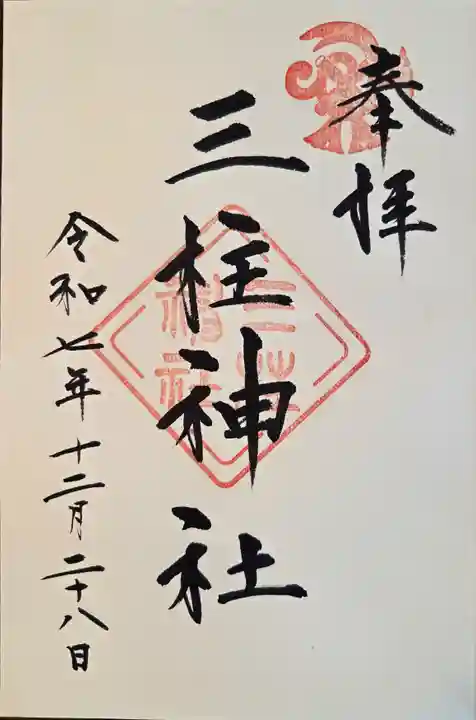 奉拝
三柱神社
三柱
神社
令和七年十二月二十八日